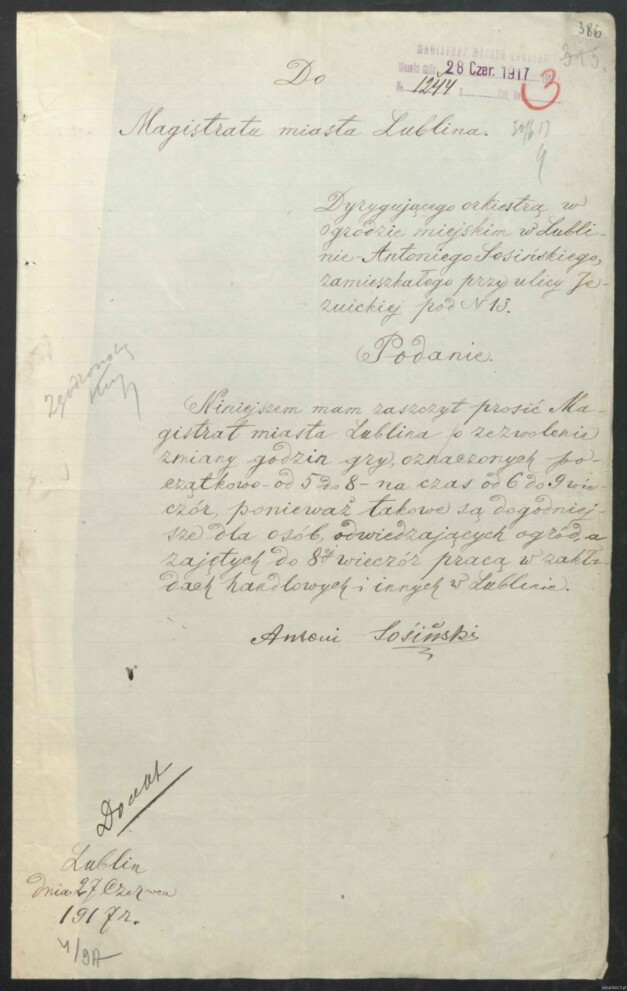 386
315.
MAGISTRAT MIASTA LUBLINA
28 Czer. 1917
№ 1244
3
Do
Magistratu miasta Lublina.
30/6 17
Dyrygującego orkiestrą w
ogrodzie miejskim w Lubli-
nie - Antoniego Sosińskiego,
zamieszkałego przy ulicy Je-
zuickiej pod N 13.
Podanie.
Niniejszem mam zaszczyt prosić Ma-
gistrat miasta Lublina o zezwolenie
zmiany godzin gry, oznaczonych po-
czątkowo - od 5 do 8 - na czas od 6 do 9 wie-
czór, ponieważ takowe są dogodniej-
sze dla osób, odwiedzających ogród, a
zajętych do 8ej wieczór pracą w zakła-
dach handlowych i innych w Lublinie.
Antoni Sosiński
Lublin
dnia 27 Czerwca
1917 r.